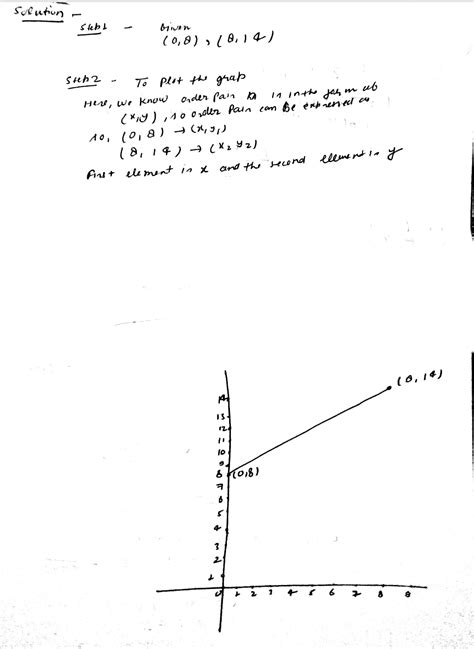 Solution -
Step1 - Given
(0,8), (8,14)
Step2 - To plot the grap
Here, we know order pair is in the form ob
(x,y), so order pair can be expressed as
so, (0,8) → (x,y,)
(8, 14) → (x2 y2)
first element is x and the second element is y
(8,14)
14
13
12
11
10
9
8 (0,8)
7
6
5
4
3
2
1
0 1 2 3 4 5 6 7 8 9